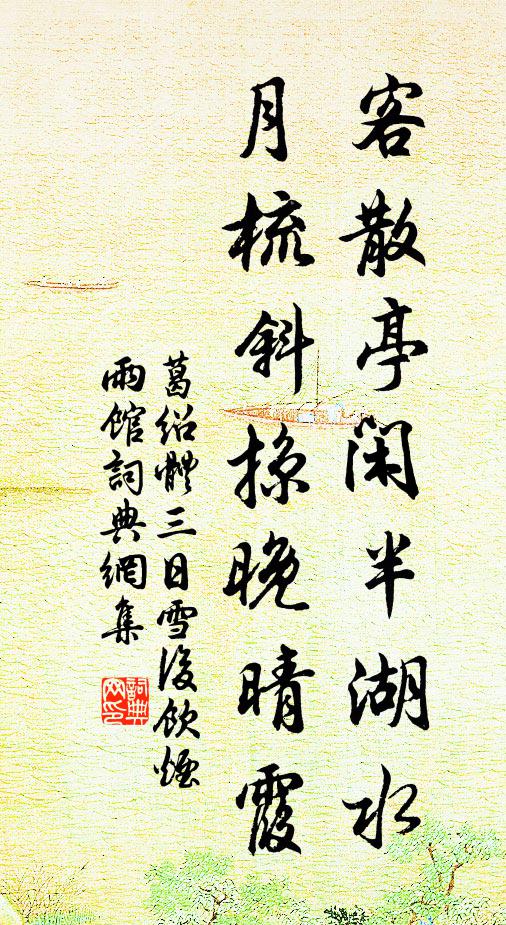 客散亭闲半湖水
月梳斜掠晚晴霞
葛绍體三日雪後飲煙
雨館詞典網集
詞典
网印